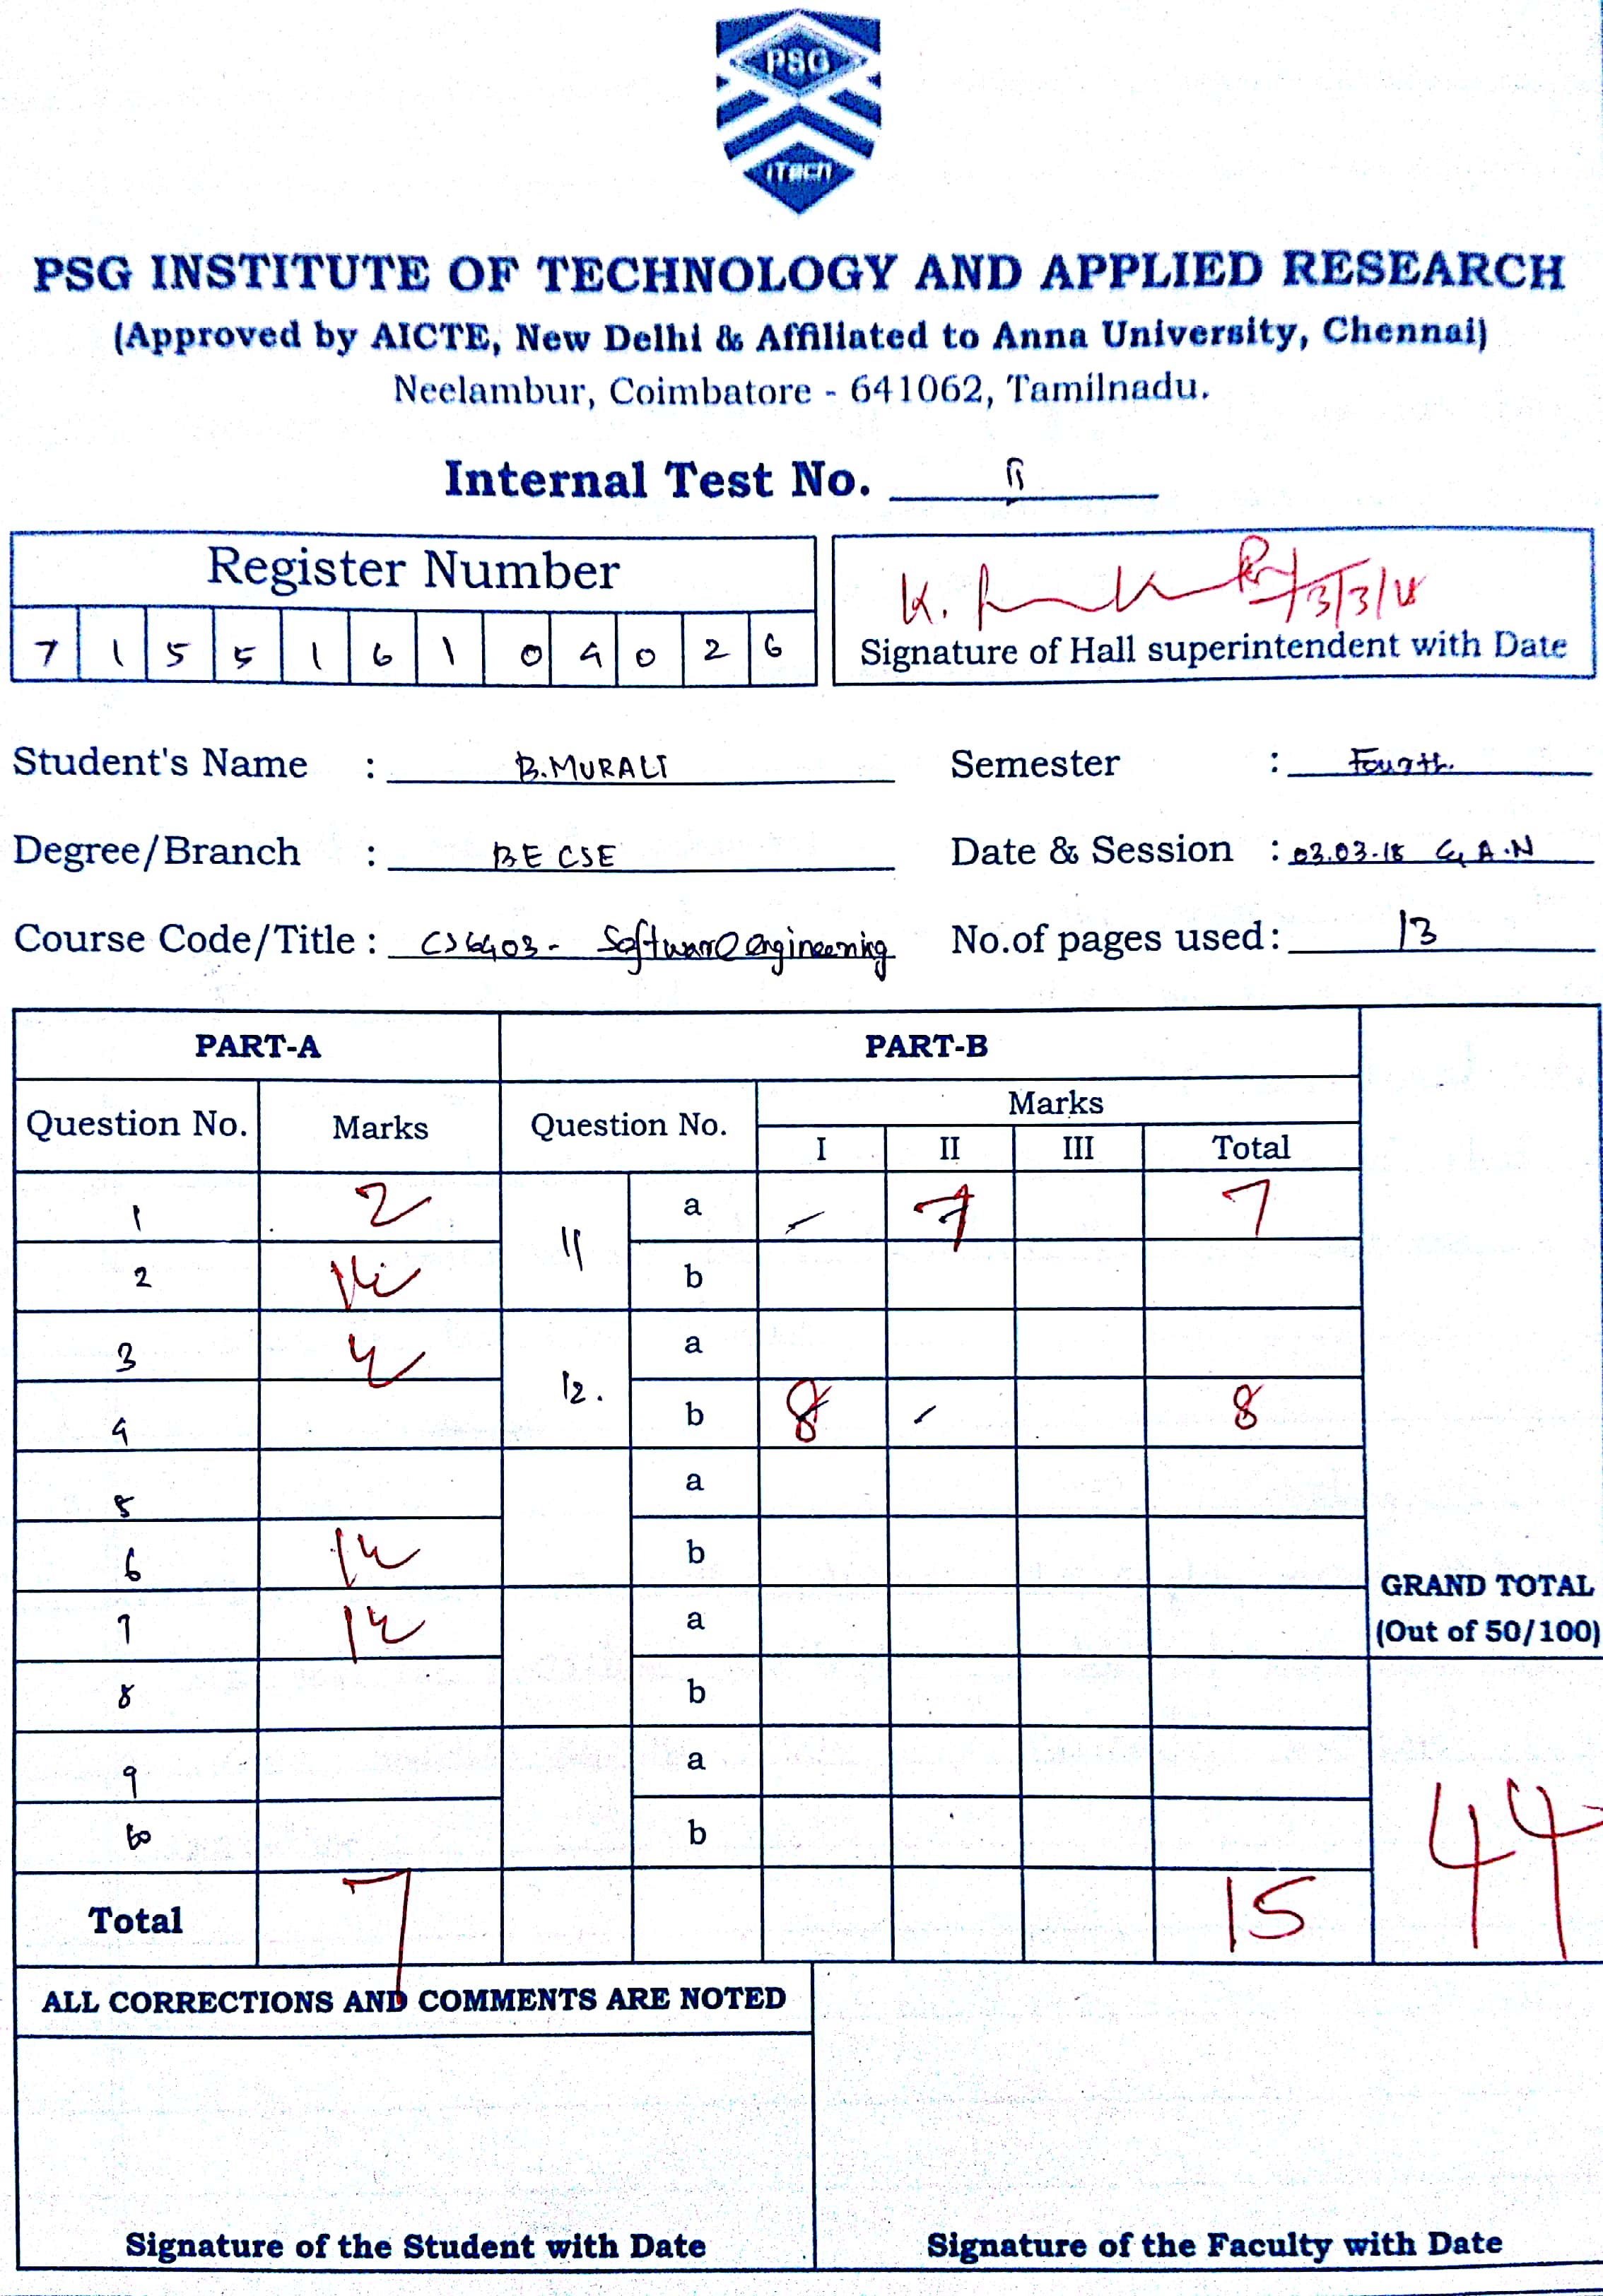 PSG
iTech
PSG INSTITUTE OF TECHNOLOGY AND APPLIED RESEARCH
(Approved by AICTE, New Delhi & Affiliated to Anna University, Chennai)
Neelambur, Coimbatore - 641062, Tamilnadu.
Internal Test No. II
Register Number
7 1 5 5 1 6 1 0 4 0 2 6
K. 3/3/18
Signature of Hall superintendent with Date
Student's Name : B.MURALI
Semester : Fourth.
Degree/Branch : BE CSE
Date & Session : 03.03.18 & A.N
Course Code/Title : CS6403 - Software engineering
No.of pages used: 13
PART-A PART-B
Question No. Marks Question No. Marks
I II III Total
1 2 11 a - 7 7
2 b
3 12. a
4 b 8 - 8
5 a
6 b
7 a
8 b
9 a
10 b
GRAND TOTAL
(Out of 50/100)
44
Total 7 15
ALL CORRECTIONS AND COMMENTS ARE NOTED
Signature of the Student with Date
Signature of the Faculty with Date